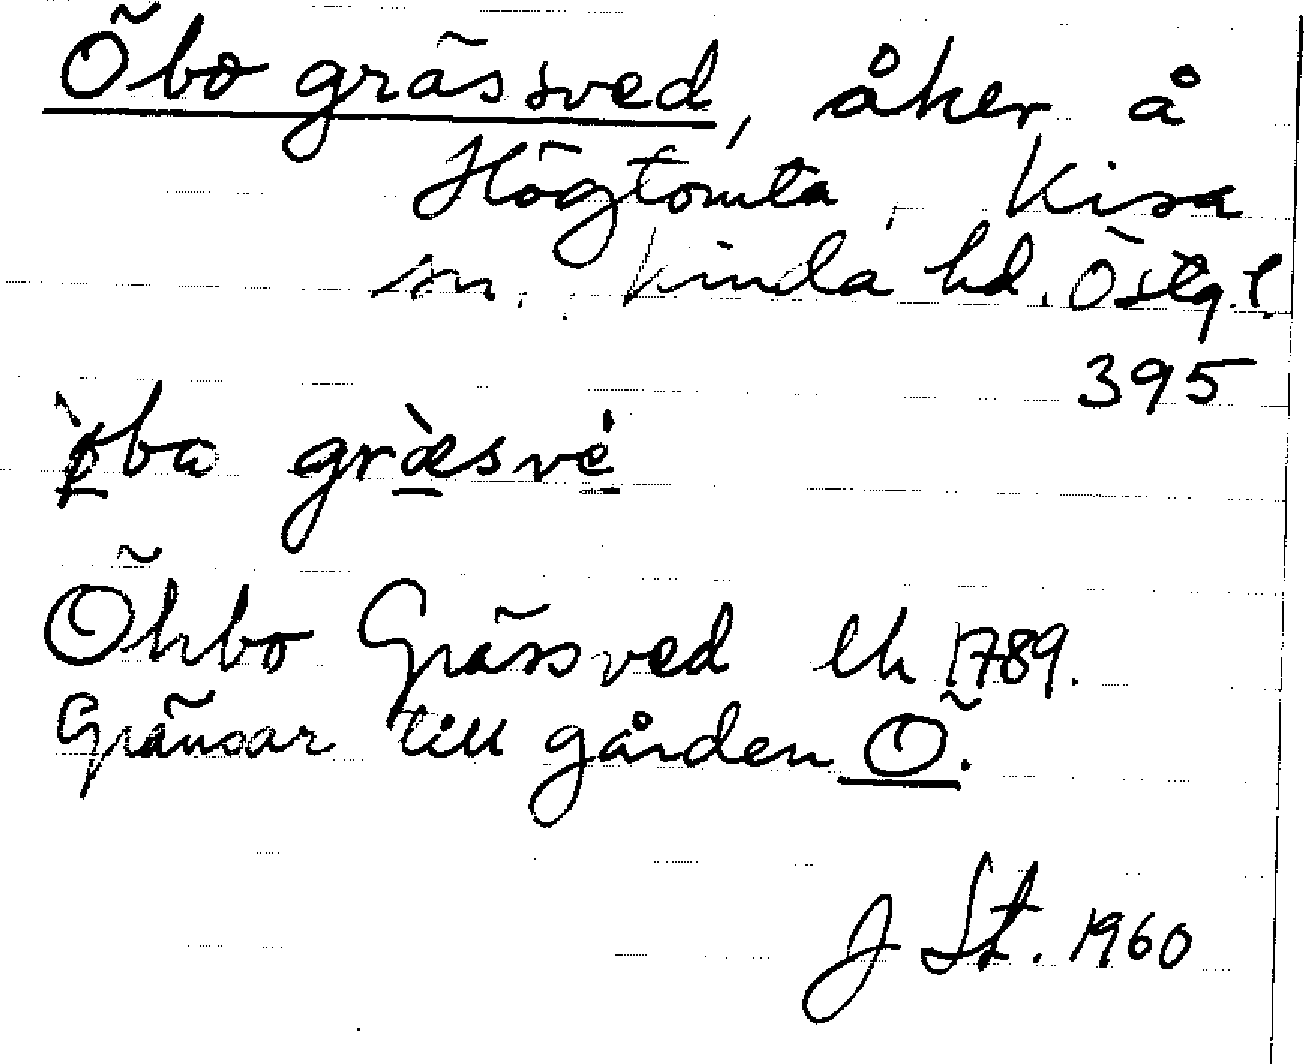 Öbo gräsved, åker å
Högtomta, Kisa
sn. Kinda hd. Östg.l.
395
ø̀ba græ̀sve
Öhrbo Grässved lh 1789.
Gränsar till gården Ö.
J St. 1960